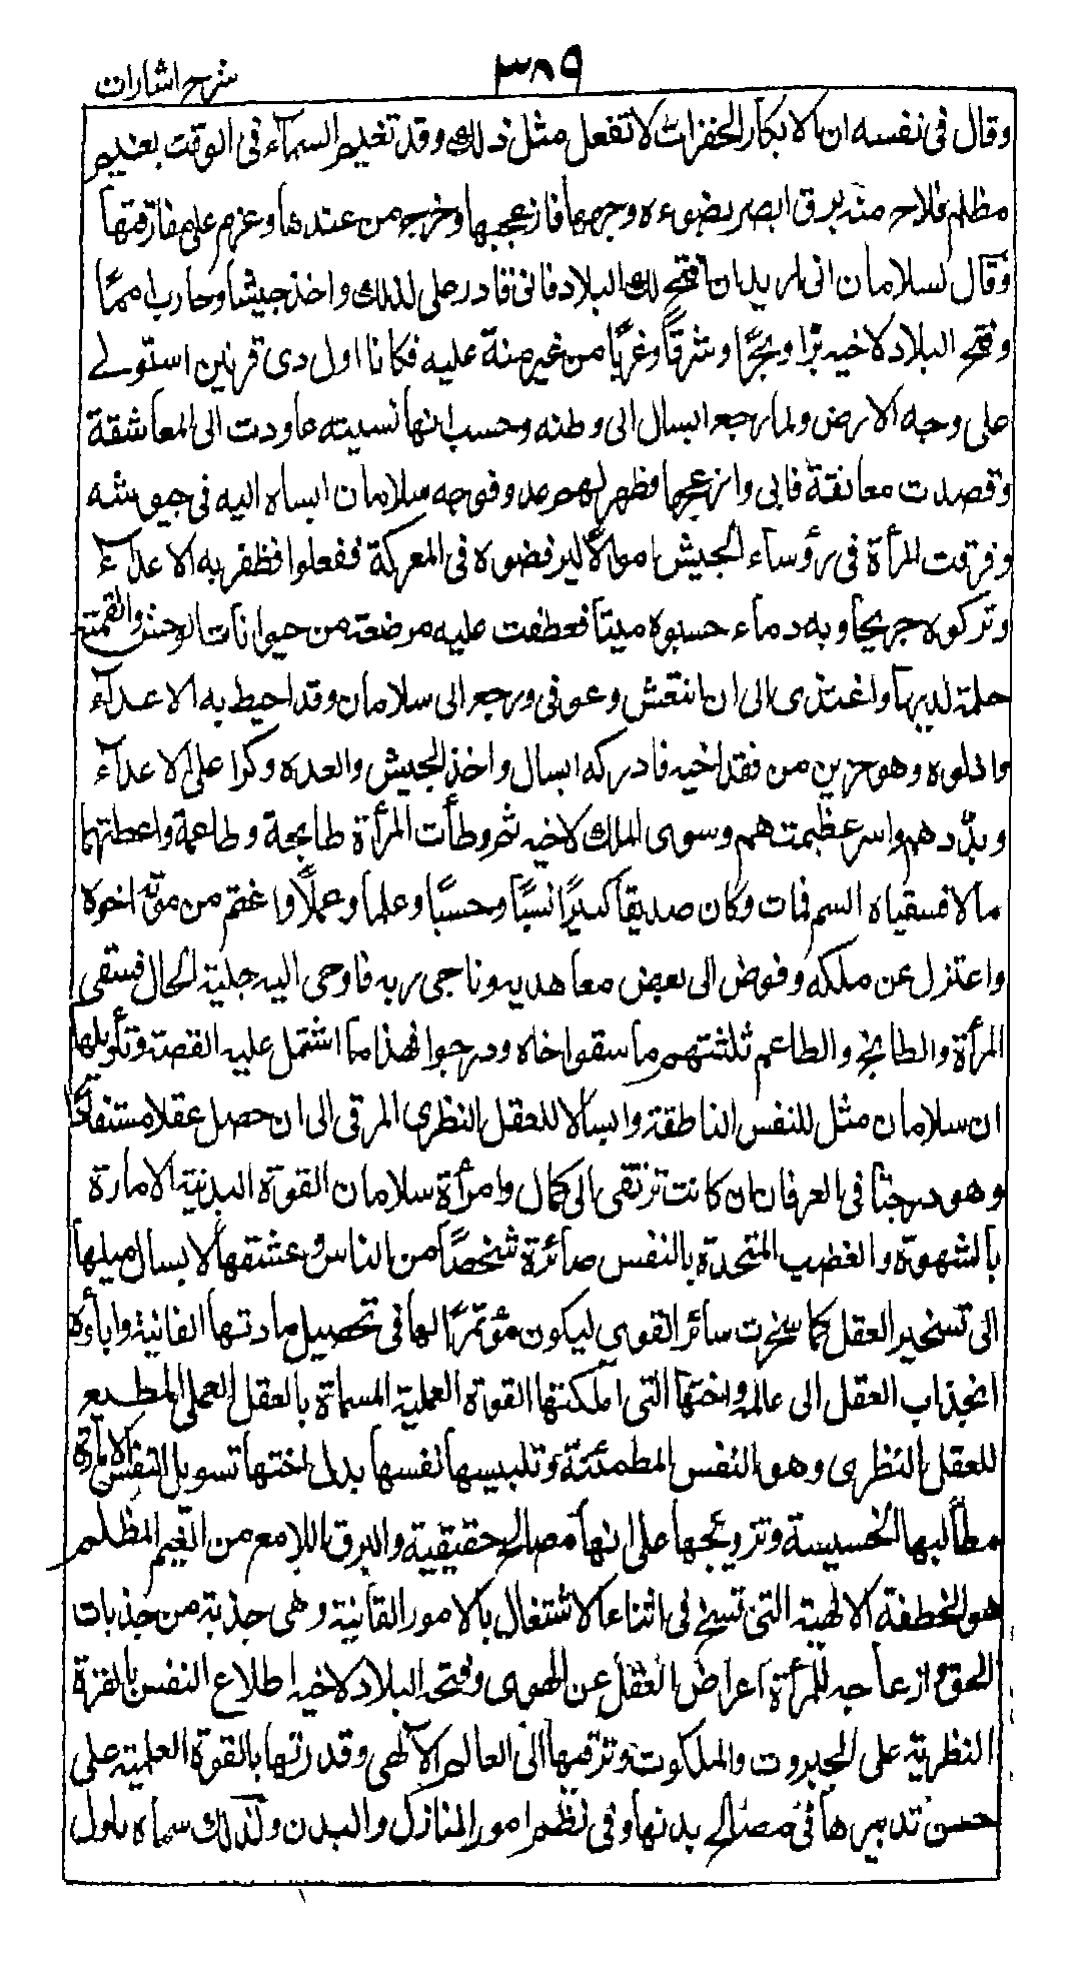 ٣٨٩
شرح اشارات
وقال فى نفسه ان الابكار الخفرات لا تفعل مثل ذلك وقد تغيم السمآء فى الوقت بغيم
مظلم فلاح منه برق ابصر بضوءه وجهها فازعجها وخرج من عندها وعزم على مفارقتها
وقال لسلامان انى اريد ان افتح لك البلاد فانى قادر على لذلك واخذ جيشا وحارب امما
وفتح البلاد لاخيه برًّا وبحرًا وشرقاً وغربًا من غير منة عليه فكانا اول ذى قرنين استولے
على وجه الارض ولما رجع ابسال الى وطنه وحسب انها نسيته عاودت الى المعاشقة
وقصدت معانقة فابى وازعجها فظهر لهم عدو فوجه سلامان ابساه اليه فى جيوشه
وفرقت المرأة فى رؤسآء الجيش اموالًا ليرفضوه فى المعركة ففعلوا فظفر به الاعدآء
وتركوه جريحا وبه دماء حسبوه ميتا فعطفت عليه مرضعة من حيوانات الوحش والقمته
حلمة لديها واغتذى الى ان انتعش وعوفى ورجع الى سلامان وقد احيط به الاعدآء
واذلوه وهو حزين من فقد اخيه فادركه ابسال واخذ الجيش والعده وكرا على الاعدآء
وبدّدهم واسر عظيمتهم وسوى الملك لاخيه ثم وطأت المرأة طابخة وطاعمة واعطتهما
مالا فسقياه السم فمات وكان صديقا كبيرًا نسبًا وحسبًا وعلما وعملًا واغتم من موته اخوه
واعتزل عن ملكه وفوض الى بعض معاهديه وناجى ربه فاوحى اليه جلية الحال فسقى
المرأة والطابخ والطاعم ثلثتهم ما سقوا خاه ودرجوا فهذا ما اشتمل عليه القصة وتأويلها
ان سلامان مثل للنفس الناطقة وابسالا للعقل النظرى المرقى الى ان حصل عقلا مستفادًا
وهو درجتا فى العرفان ان كانت ترتقى الى كمال وامرأة سلامان القوة البدنية الامارة
بالشهوة والغضب المتحدة بالنفس صائرة شخصًا من الناس وعشقها لابسال ميلها
الى تسخير العقل كما سخرت سائر القوى ليكون مؤتمرًا لها فى تحصيل مادتها الفانية واباءه
انجذاب العقل الى عالمه واختها التى املكتها القوة العملية المسماة بالعقل العملى المطيع
للعقل النظرى وهو النفس المطمئنة وتلبيسها نفسها بدل اختها تسويل النفس الامارة
مطالبها الخسيسة وترويجها على انها مصالح حقيقية والبرق اللامع من الغيم المظلم
هو الخطفة الالهية التى تسنح فى اثناء الاشتغال بالامور الفانية وهى جذبة من جذبات
الحق وازعاجه للمرأة اعراض العقل عن الهوى وفتحه البلاد لاخيه اطلاع النفس بالقوة
النظرية على الجبروت والملكوت وترقيها الى العالم الآلهى وقدرتها بالقوة العلمية على
حسن تدبيرها فى مصالح بدنها وفى نظم امور المنازل والبدن ولذلك سماه باول